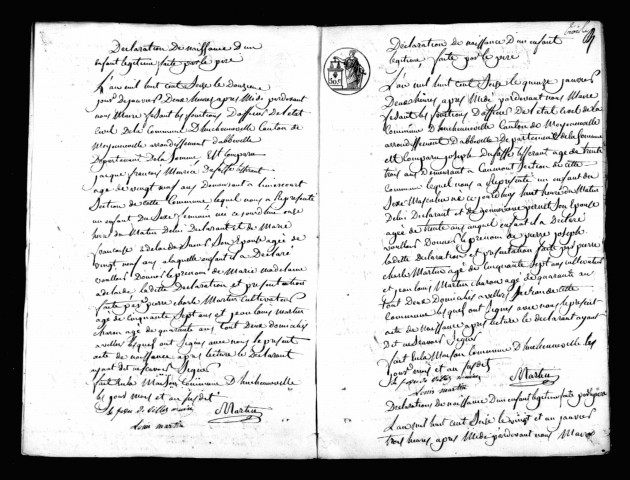 Declaration De naissance d'un
enfant legitime faite par le pere
L'an mil huit cent Seize le Douzieme
jour de janvier Deux heures apres Midi pardevant
nous Maire fesant les fonctions D'officier De l'etat
Civil De la Commune D'huchenneville Canton de
Moyenneville arrondissement d'abbeville
Departement De la Somme Est Comparu
jacque francois Maurice
age de vingt neuf ans Demeurant a limercourt
Section de cette Commune lequel nous a Represente
un enfant du Sexe feminin ne ce jourdhui onze
heures du Matin De lui Declarant et de Marie
francoise Son Epouse agee de
vingt neuf ans a laquelle enfant il a Declare
vouloir Donner le prenom de Marie Madelaine
adelaide la ditte Declaration et presentation
faite par pierre charle Martin Cultivateur
age de Cinquante Sept ans et jean louis martin
charon age de quarante ans tout Deux domicilies
a villers lesquels ont Signes avec nous le present
acte de naissance apres lecture le Declarant
ayant dit ne savoir Signer
fait en la Maison Commune D'huchenneville
les jour mois et an susdit
Martin
Louis martin
Declaration de naissance D'un enfant
legitime faite par le pere
L'an mil huit cent Seize le quinze janvier
Deux heures apres Midi pardevant nous Maire
fesant les fonctions D'officier De l'etat Civil de la
Commune D'huchenneville Canton de Moyenneville
arrondissement D'abbeville Departement de la Somme
est Comparu joseph tisserant age de trente
trois ans Demeurant a Caumont Section de cette
Commune lequel nous a Represente un enfant du
Sexe Masculin ne ce jourdhui heures du Matin
De lui Declarant et de Son Epouse
agee de trente ans auquel enfant il a Declare
vouloir Donner le prenom de pierre joseph
la ditte Declaration et presentation faite par pierre
charle Martin age de Cinquante Sept ans cultivateur
et jean louis Martin charon age de quarante ans
tout Deux domicilies a villers Section de cette
Commune lesquels ont Signes avec nous le present
acte de naissance apres lecture le declarant ayant
Dit ne Savoir Signer
fait en la Maison Commune D'huchenneville les
jour mois et an susdit
Martin
Louis martin
Declaration de naissance D'un enfant legitime faite par le pere
L'an mil huit cent Seize le vingt et un janvier
trois heures apres Midi pardevant nous Maire